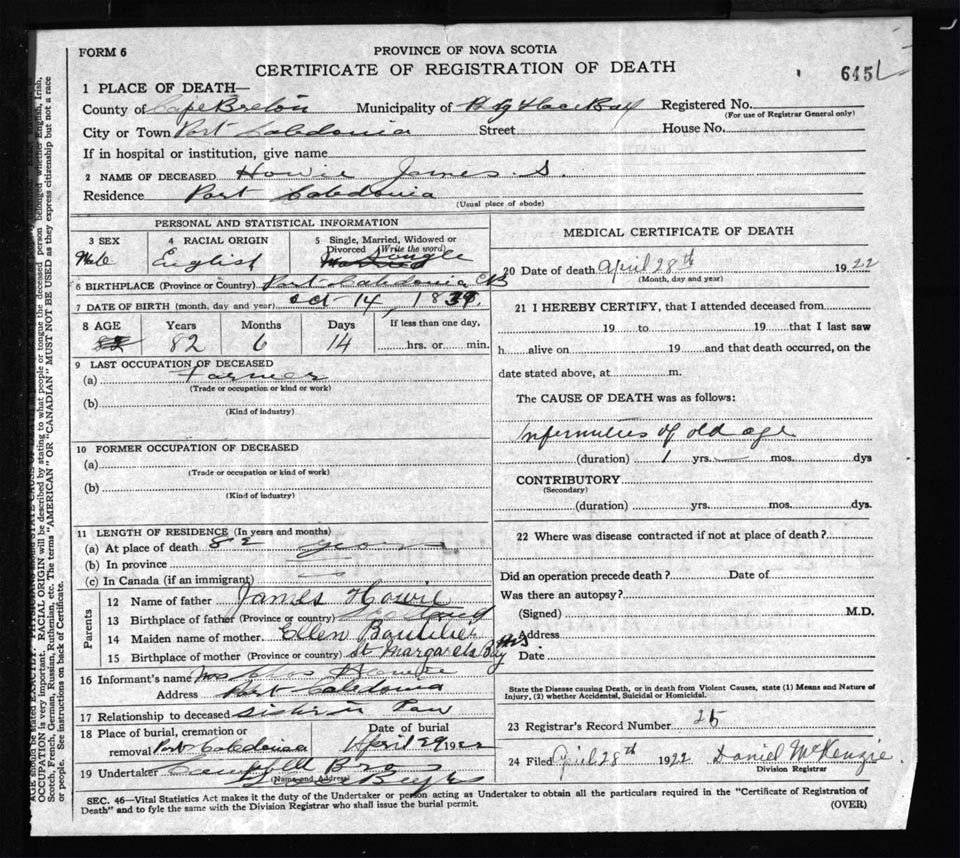 FORM 6
PROVINCE OF NOVA SCOTIA
CERTIFICATE OF REGISTRATION OF DEATH
645
1 PLACE OF DEATH—
County of Cape Breton Municipality of Registered No.
(For use of Registrar General only)
City or Town Port Caledonia Street House No.
If in hospital or institution, give name
2 NAME OF DECEASED Howie James S.
Residence Port Caledonia
(Usual place of abode)
PERSONAL AND STATISTICAL INFORMATION
3 SEX 4 RACIAL ORIGIN 5 Single, Married, Widowed or
Divorced (Write the word)
Male English Single
6 BIRTHPLACE (Province or Country) Port Caledonia CB
7 DATE OF BIRTH (month, day and year) Oct 14, 1839.
8 AGE Years Months Days If less than one day,
82 82 6 14 hrs. or min.
9 LAST OCCUPATION OF DECEASED
(a) Farmer
(Trade or occupation or kind or work)
(b)
(Kind of industry)
10 FORMER OCCUPATION OF DECEASED
(a)
(Trade or occupation or kind of work)
(b)
(Kind of industry)
11 LENGTH OF RESIDENCE (In years and months)
(a) At place of death 82 years
(b) In province
(c) In Canada (if an immigrant)
Parents
12 Name of father James Howie
13 Birthplace of father (Province or country) Scotland
14 Maiden name of mother Ellen Boutilier
15 Birthplace of mother (Province or country) St Margarets Bay NS
16 Informant's name Mrs
Address Port Caledonia
17 Relationship to deceased Sister in Law
18 Place of burial, cremation or Date of burial
removal Port Caledonia April 29 1922
19 Undertaker Campbell Bros
(Name and Address)
MEDICAL CERTIFICATE OF DEATH
20 Date of death April 28th 1922
(Month, day and year)
21 I HEREBY CERTIFY, that I attended deceased from
19 to 19 that I last saw
h alive on 19 and that death occurred, on the
date stated above, at m.
The CAUSE OF DEATH was as follows:
Infirmities of old age
(duration) 1 yrs. mos. dys
CONTRIBUTORY
(Secondary)
(duration) yrs. mos. dys.
22 Where was disease contracted if not at place of death?
Did an operation precede death? Date of
Was there an autopsy?
(Signed) M.D.
Address
Date
State the Disease causing Death, or in death from Violent Causes, state (1) Means and Nature of
Injury, (2) whether Accidental, Suicidal or Homicidal.
23 Registrar's Record Number 25
24 Filed April 28th 1922 Daniel McKenzie.
Division Registrar
SEC. 46—Vital Statistics Act makes it the duty of the Undertaker or person acting as Undertaker to obtain all the particulars required in the "Certificate of Registration of
Death" and to fyle the same with the Division Registrar who shall issue the burial permit.
(OVER)
OCCUPATION is very important. RACIAL ORIGIN will be described by stating to what people or tongue the deceased person belonged whether English, Irish,
Scotch, French, German, Russian, Ruthenian, etc. The terms "AMERICAN" OR "CANADIAN" MUST NOT BE USED as they express citizenship but not a race
or people. See instructions on back of Certificate.